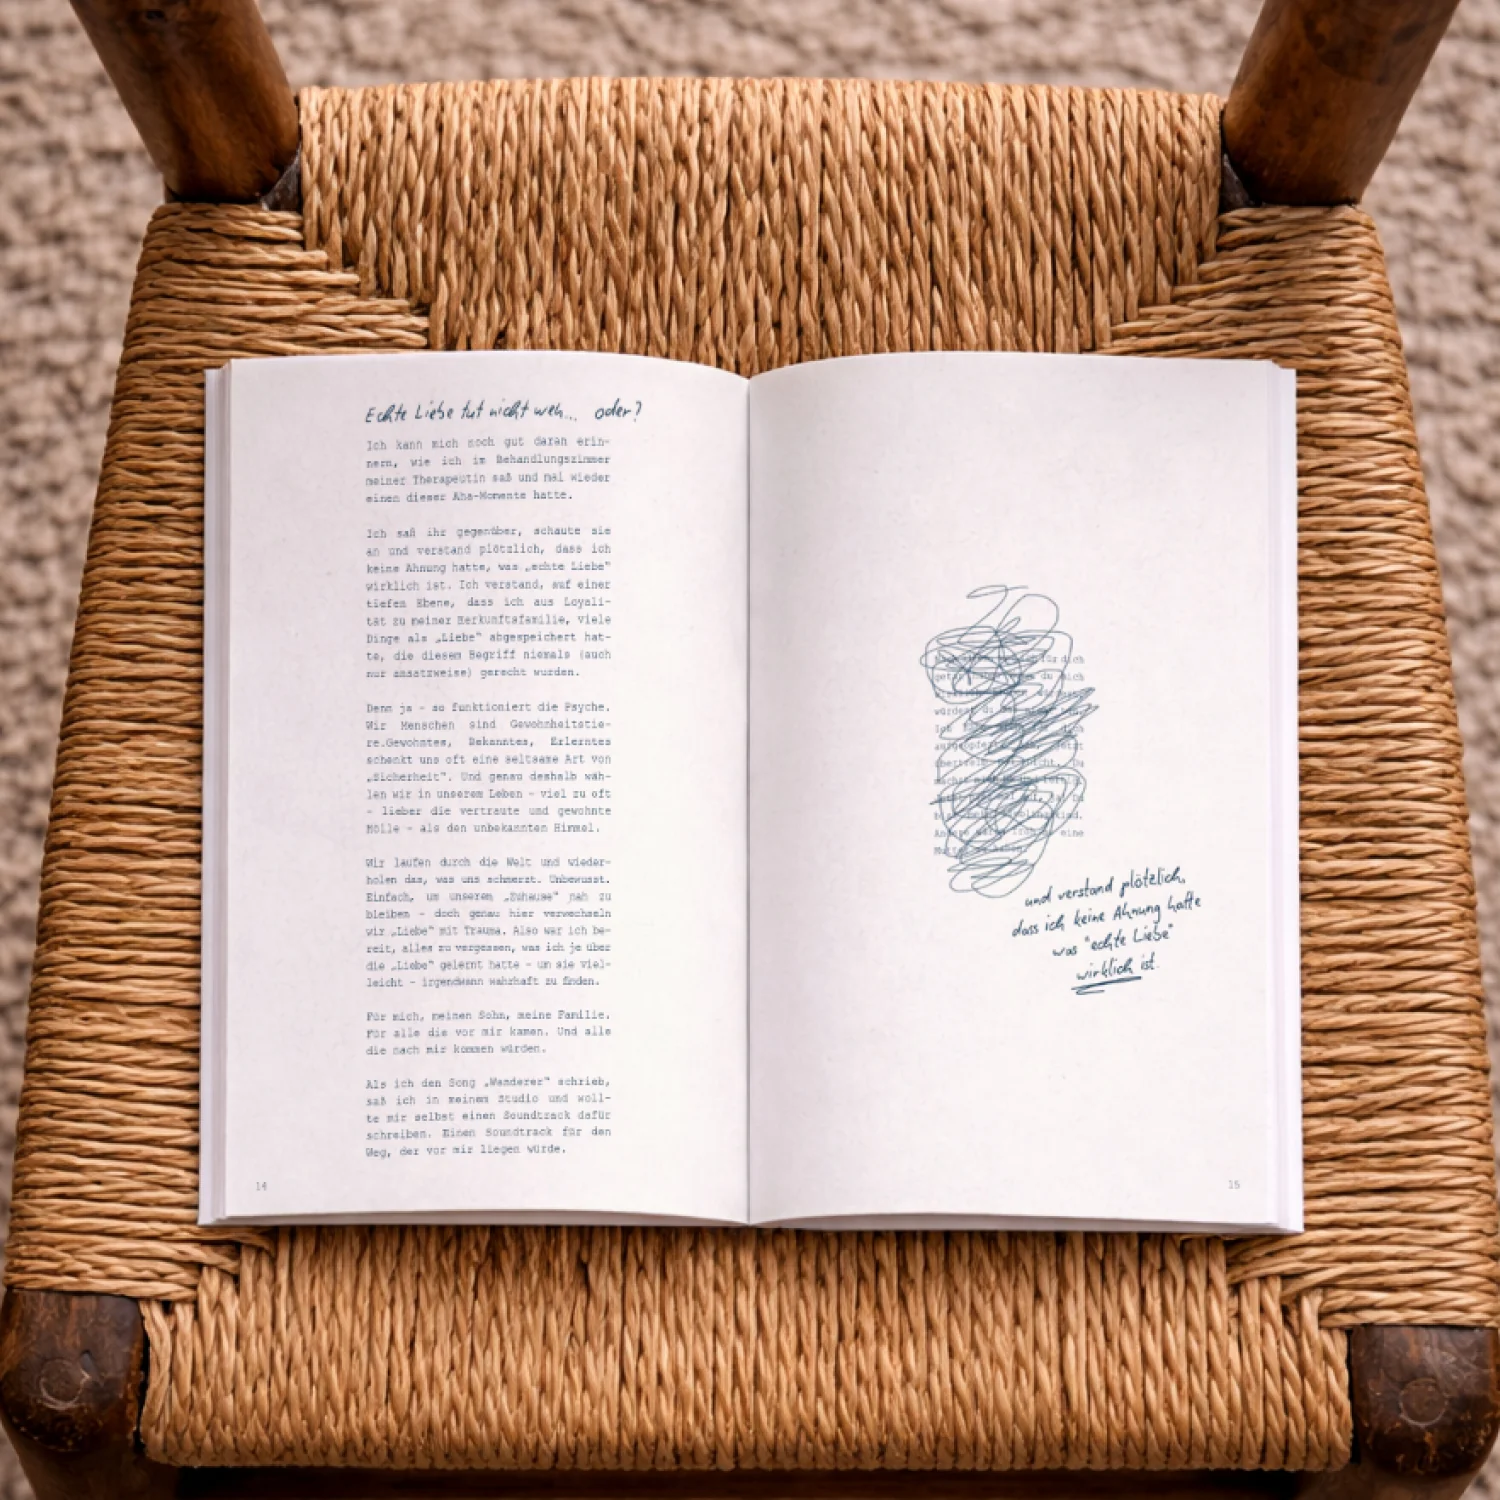 Echte Liebe tut nicht weh... oder?
Ich kann mich noch gut daran erin-
nern, wie ich im Behandlungszimmer
meiner Therapeutin saß und mal wieder
einen dieser Aha-Momente hatte.
Ich saß ihr gegenüber, schaute sie
an und verstand plötzlich, dass ich
keine Ahnung hatte, was „echte Liebe“
wirklich ist. Ich verstand, auf einer
tiefen Ebene, dass ich aus Loyali-
tät zu meiner Herkunftsfamilie, viele
Dinge als „Liebe“ abgespeichert hat-
te, die diesem Begriff niemals (auch
nur ansatzweise) gerecht wurden.
Denn ja - so funktioniert die Psyche.
Wir Menschen sind Gewohnheitstie-
re.Gewohntes, Bekanntes, Erlerntes
schenkt uns oft eine seltsame Art von
„Sicherheit“. Und genau deshalb wäh-
len wir in unserem Leben - viel zu oft
- lieber die vertraute und gewohnte
Hölle - als den unbekannten Himmel.
Wir laufen durch die Welt und wieder-
holen das, was uns schmerzt. Unbewusst.
Einfach, um unserem „Zuhause“ nah zu
bleiben - doch genau hier verwechseln
wir „Liebe“ mit Trauma. Also war ich be-
reit, alles zu vergessen, was ich je über
die „Liebe“ gelernt hatte - um sie viel-
leicht - irgendwann wahrhaft zu finden.
Für mich, meinen Sohn, meine Familie.
Für alle die vor mir kamen. Und alle
die nach mir kommen würden.
Als ich den Song „Wanderer“ schrieb,
saß ich in meinem Studio und woll-
te mir selbst einen Soundtrack dafür
schreiben. Einen Soundtrack für den
Weg, der vor mir liegen würde.
14
für dich
du mich
würdest du
Ich
Du
eine
und verstand plötzlich,
dass ich keine Ahnung hatte
was "echte Liebe"
wirklich ist.
15